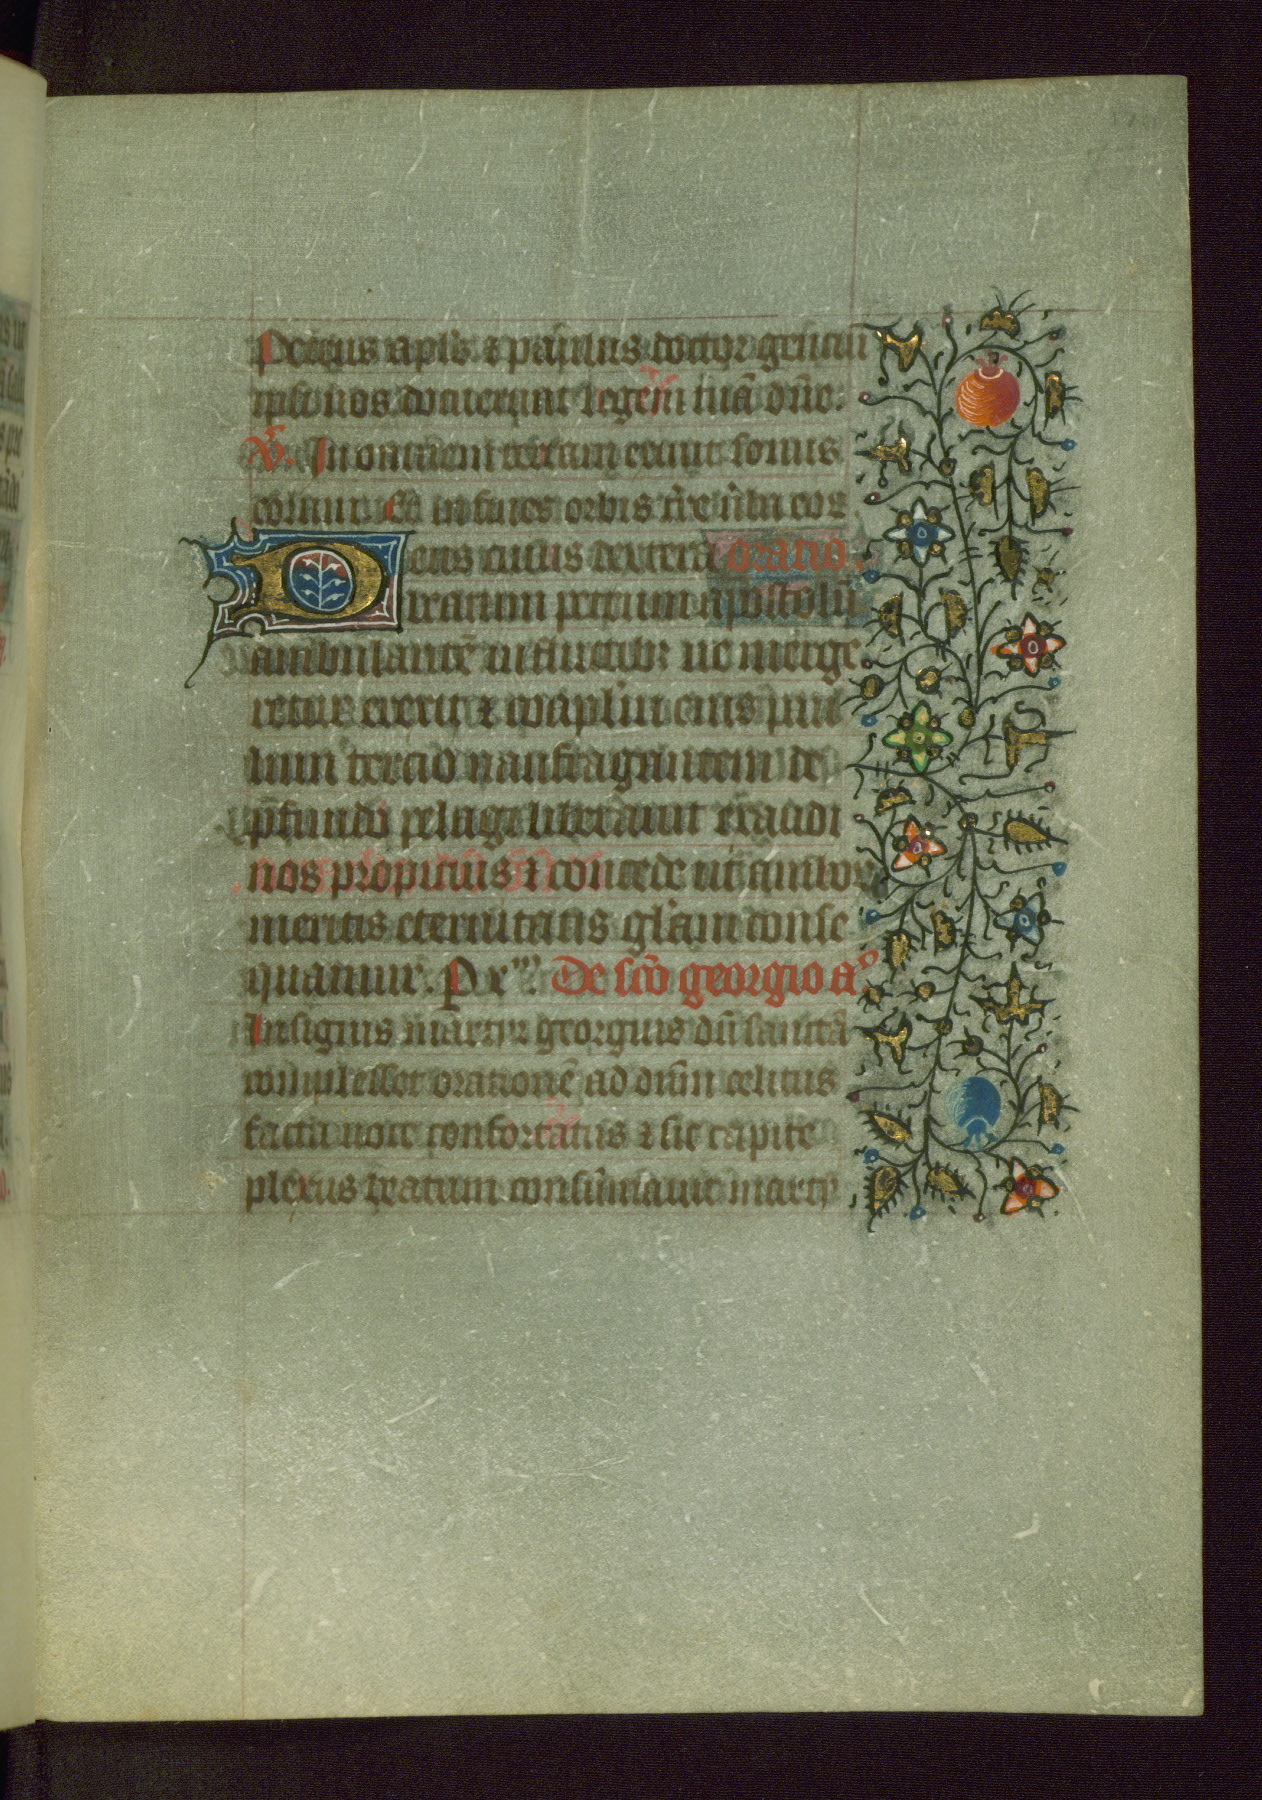 Petrus apl's ⁊ paulus doctor gentiū
ipsi nos docuerunt legem tuā dn̄e.
V̄. In omnem terram exiuit sonus
eorum. Et in fines orbis t're ūba eoꝝ
Deus cuius dextera oratio.
beatum petrum apostolū
ambulantē in fluctibꝫ ne merge
retur erexit ⁊ coap̄lm̄ eius paul
lum tercio naufragantem de
p̄fundo pelagi liberauit exaudi
nos propicius ⁊ concede ut amboꝝ
meritis eternitatis gl'am conse
quamur. Per. De sc̄o georgio aⁿ.
Insignis martir georgius dū sanctā
complesset orationē ad dn̄m celitus
facta uoce confortatus ⁊ sic capite
plexus beatum consūmauit martị